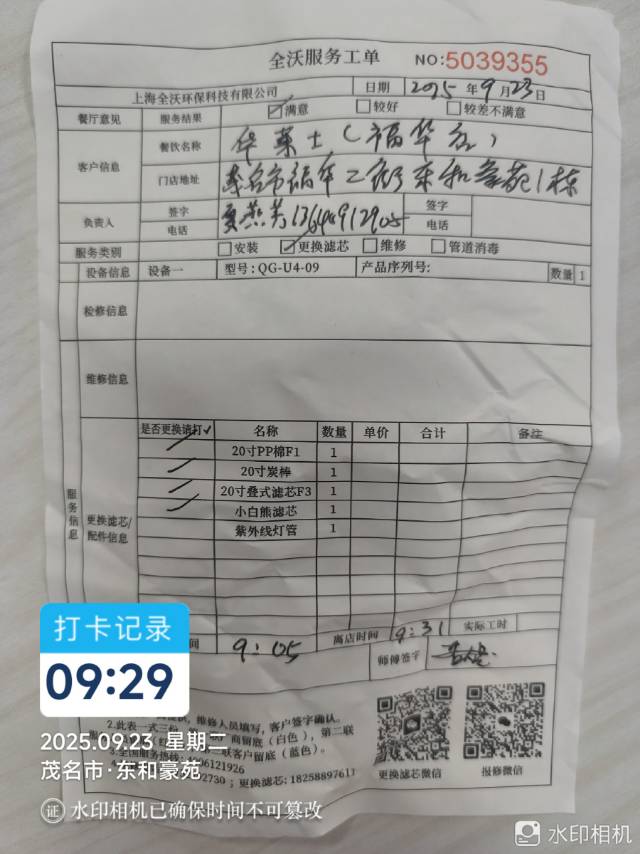 全沃服务工单 NO:5039355
上海全沃环保科技有限公司 日期 2025年9月23日
餐厅意见 服务结果 ☑满意 □较好 □较差不满意
客户信息 餐饮名称 华莱士(福华店)
门店地址 茂名市福华二街东和豪苑1栋
负责人 签字 夏燕芳 签字
电话 电话
服务类别 □安装 ☑更换滤芯 □维修 □管道消毒
设备信息 设备一 型号:QG-U4-09 产品序列号: 数量 1
检修信息
维修信息
服务信息
更换滤芯/配件信息
是否更换请打✓ 名称 数量 单价 合计 备注
✓ 20寸PP棉F1 1
✓ 20寸炭棒 1
✓ 20寸叠式滤芯F3 1
✓ 小白熊滤芯 1
紫外线灯管 1
间 9:05 离店时间 9:31 实际工时
师傅签字
维修人员填写,客户签字确认。
2.此表一式三份 商留底(白色),第二联
客户留底(蓝色)。
6121926
2730;更换滤芯:18258897611
更换滤芯微信 报修微信
打卡记录
09:29
2025.09.23 星期二
茂名市·东和豪苑
证 水印相机已确保时间不可篡改
水印相机